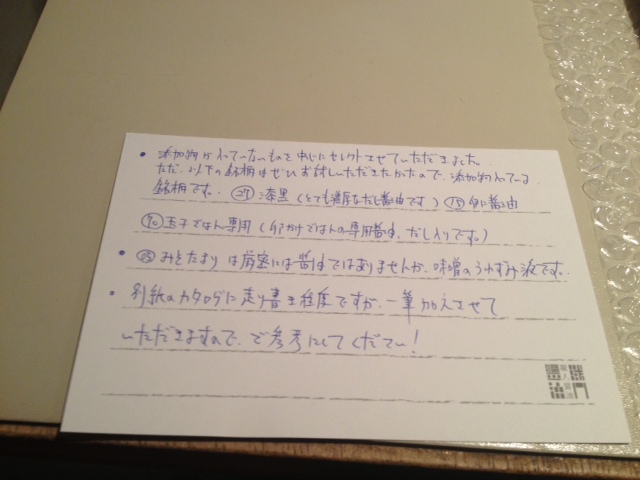 • 添加物が入っていないものを中心にセレクトさせていただきました。
ただ、以下の銘柄はぜひお試しいただきたかったので、添加物入っている
銘柄です。 ㉗ 漆黒 (とても濃厚なだし醤油です) ⑮ 白醤油
玉子ごはん専用 (卵かけごはんの専用醤油。だし入りです。)
• みそたまり は厳密には醤油ではありませんが、味噌のうわずみ液です。
• 別紙のカタログに走り書き程度ですが、一筆加えさせて
いただきますので、ご参考にしてください!